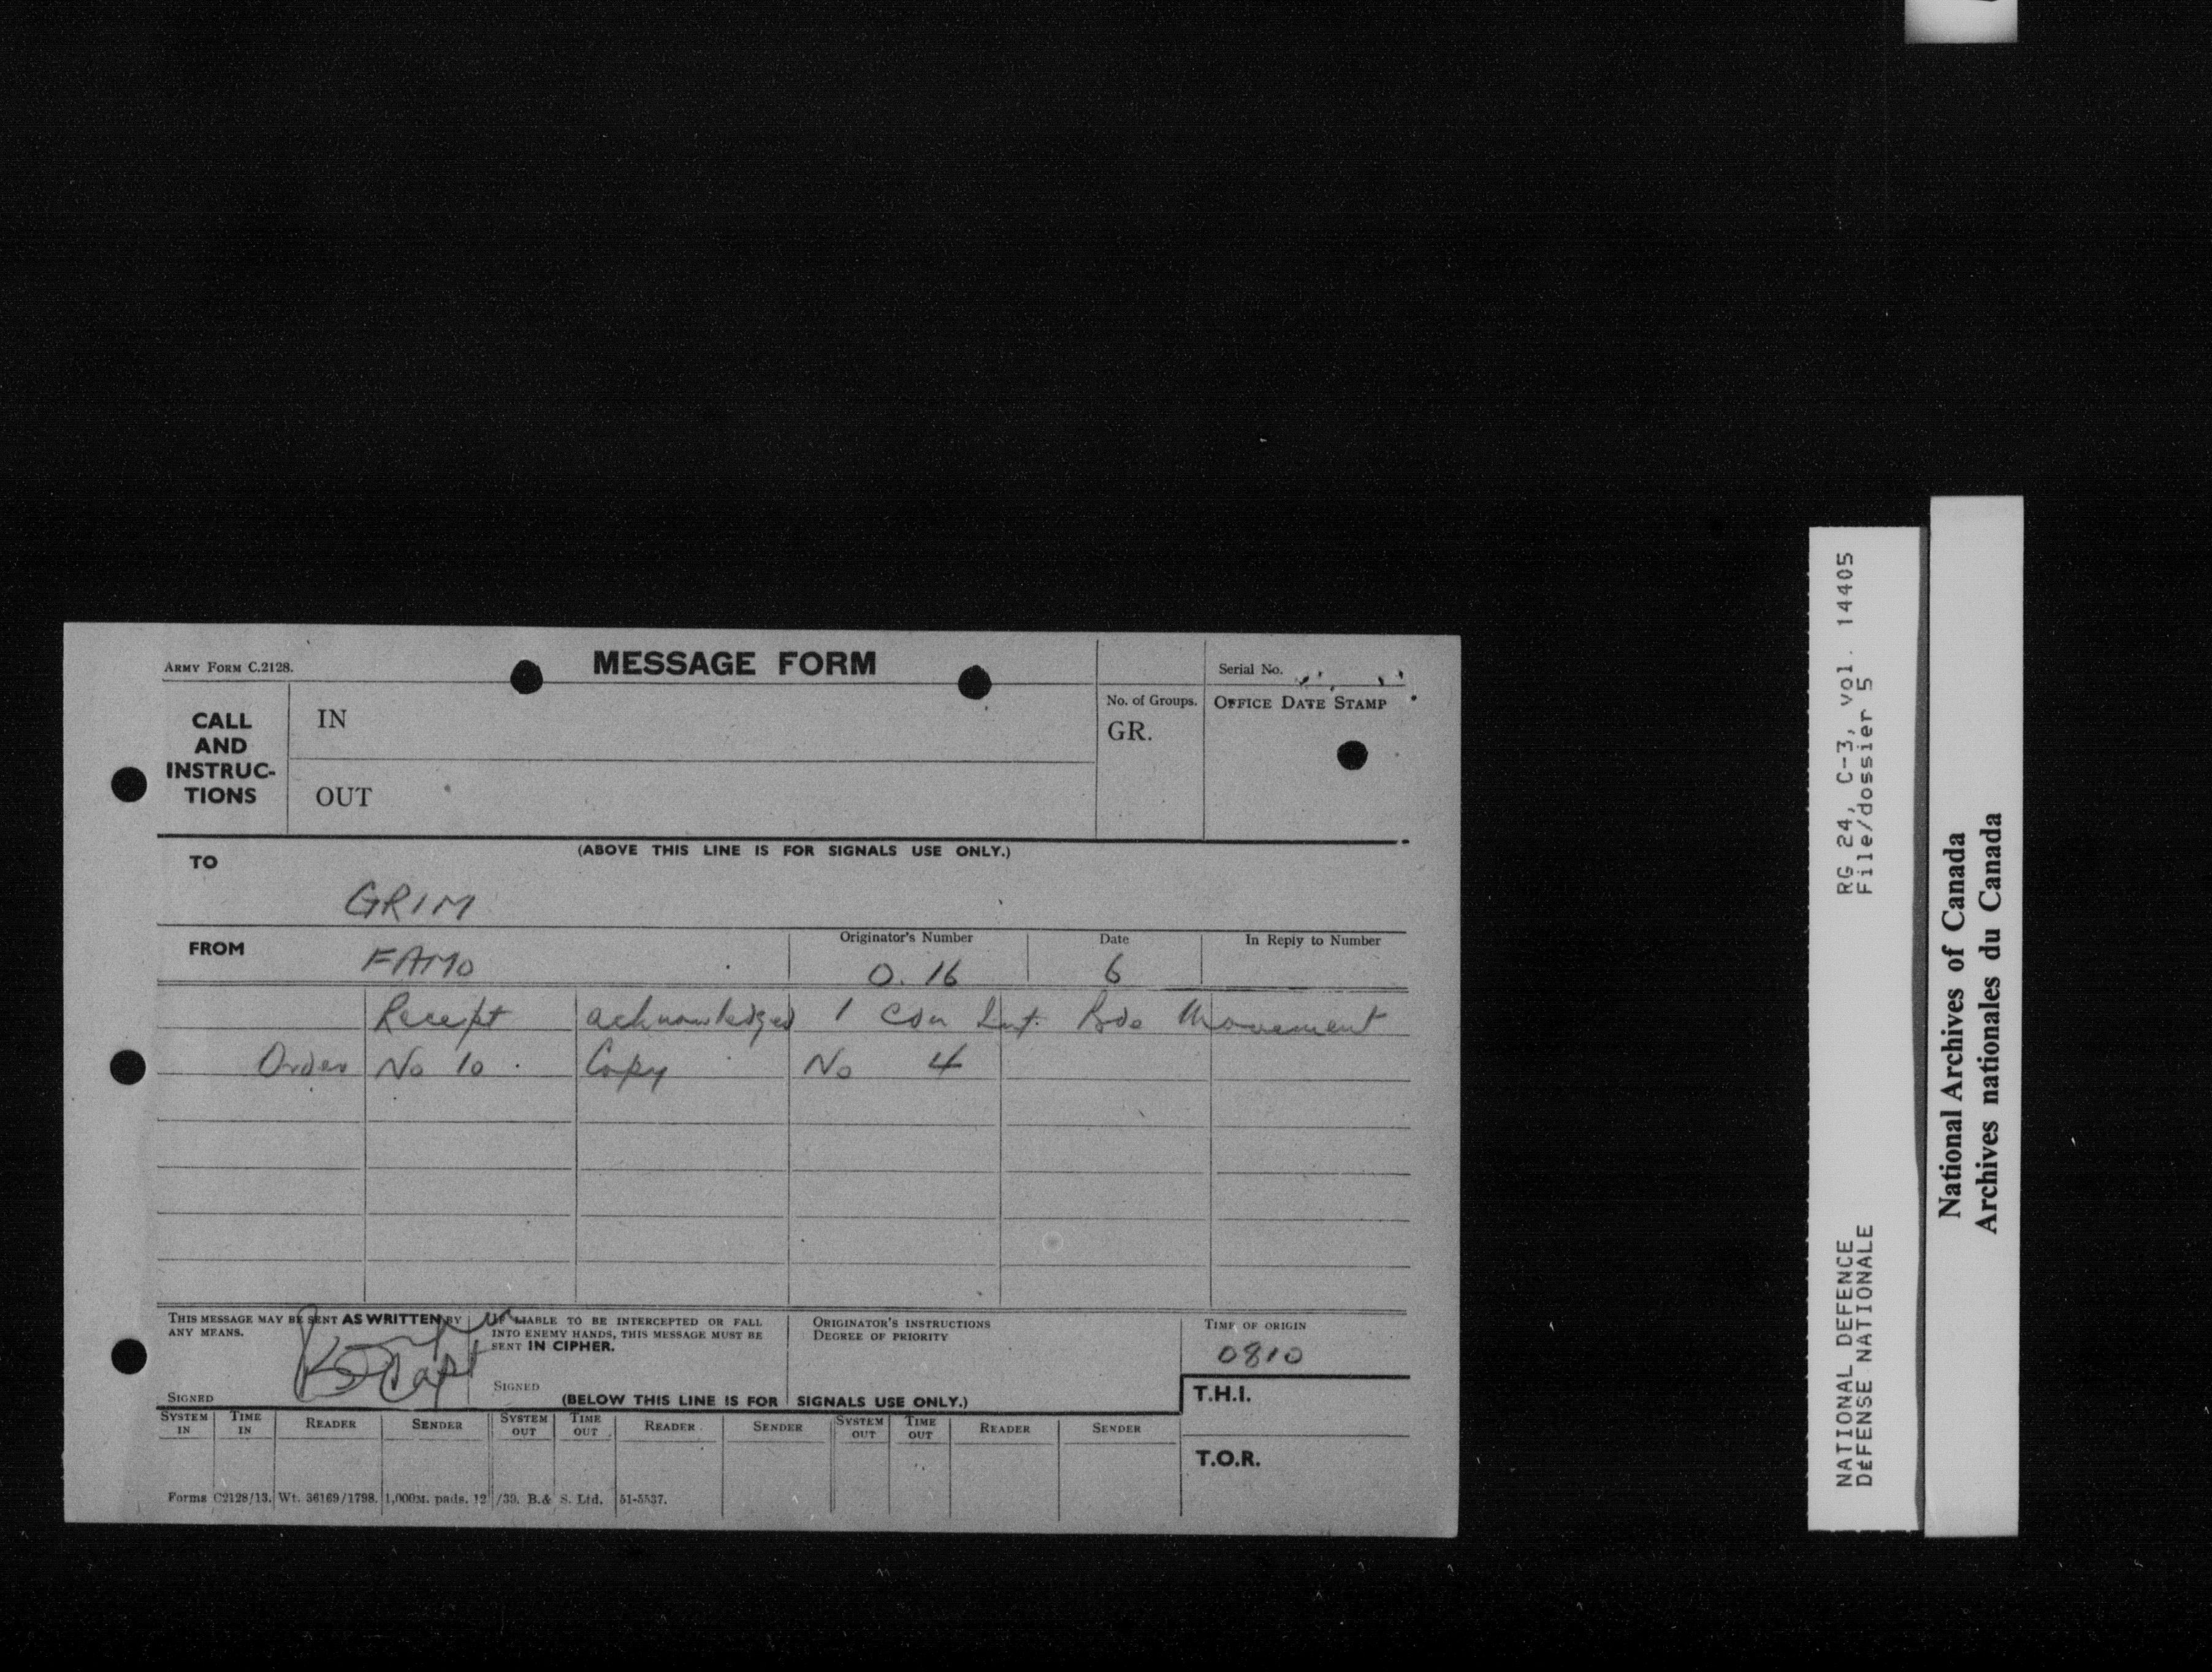 ARMY FORM C.2128.
MESSAGE FORM
Serial No.
CALL AND INSTRUC-TIONS
IN
OUT
No. of Groups.
GR.
OFFICE DATE STAMP
(ABOVE THIS LINE IS FOR SIGNALS USE ONLY.)
TO
GRIM
FROM
FAMO
Originator's Number
0. 16
Date
6
In Reply to Number
Receipt acknowledged 1 Cdn Inf. Bde Movement
Order No 10. Copy No 4
THIS MESSAGE MAY BE SENT AS WRITTEN BY
ANY MEANS.
SIGNED
Capt
LIABLE TO BE INTERCEPTED OR FALL
INTO ENEMY HANDS, THIS MESSAGE MUST BE
SENT IN CIPHER.
SIGNED
ORIGINATOR'S INSTRUCTIONS
DEGREE OF PRIORITY
TIME OF ORIGIN
0810
(BELOW THIS LINE IS FOR SIGNALS USE ONLY.)
T.H.I.
T.O.R.
SYSTEM IN
TIME IN
READER
SENDER
SYSTEM OUT
TIME OUT
READER
SENDER
SYSTEM OUT
TIME OUT
READER
SENDER
Forms C2128/13. Wt. 36169/1798. 1,000M. pads. 12/39. B.& S. Ltd. 51-5537.
NATIONAL DEFENCE RG 24, C-3, vol. 14405
DÉFENSE NATIONALE File/dossier 5
National Archives of Canada
Archives nationales du Canada